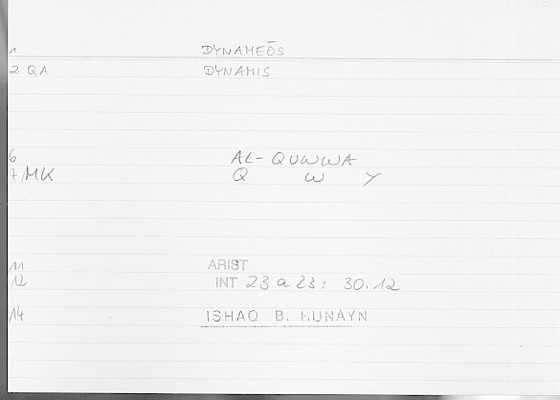 1 DYNAMEŌS
2 QA DYNAMIS
6 AL-QUWWA
7/MK Q W Y
11 ARIST
12 INT 23 a 23: 30.12
14 ISHAQ B. HUNAYN